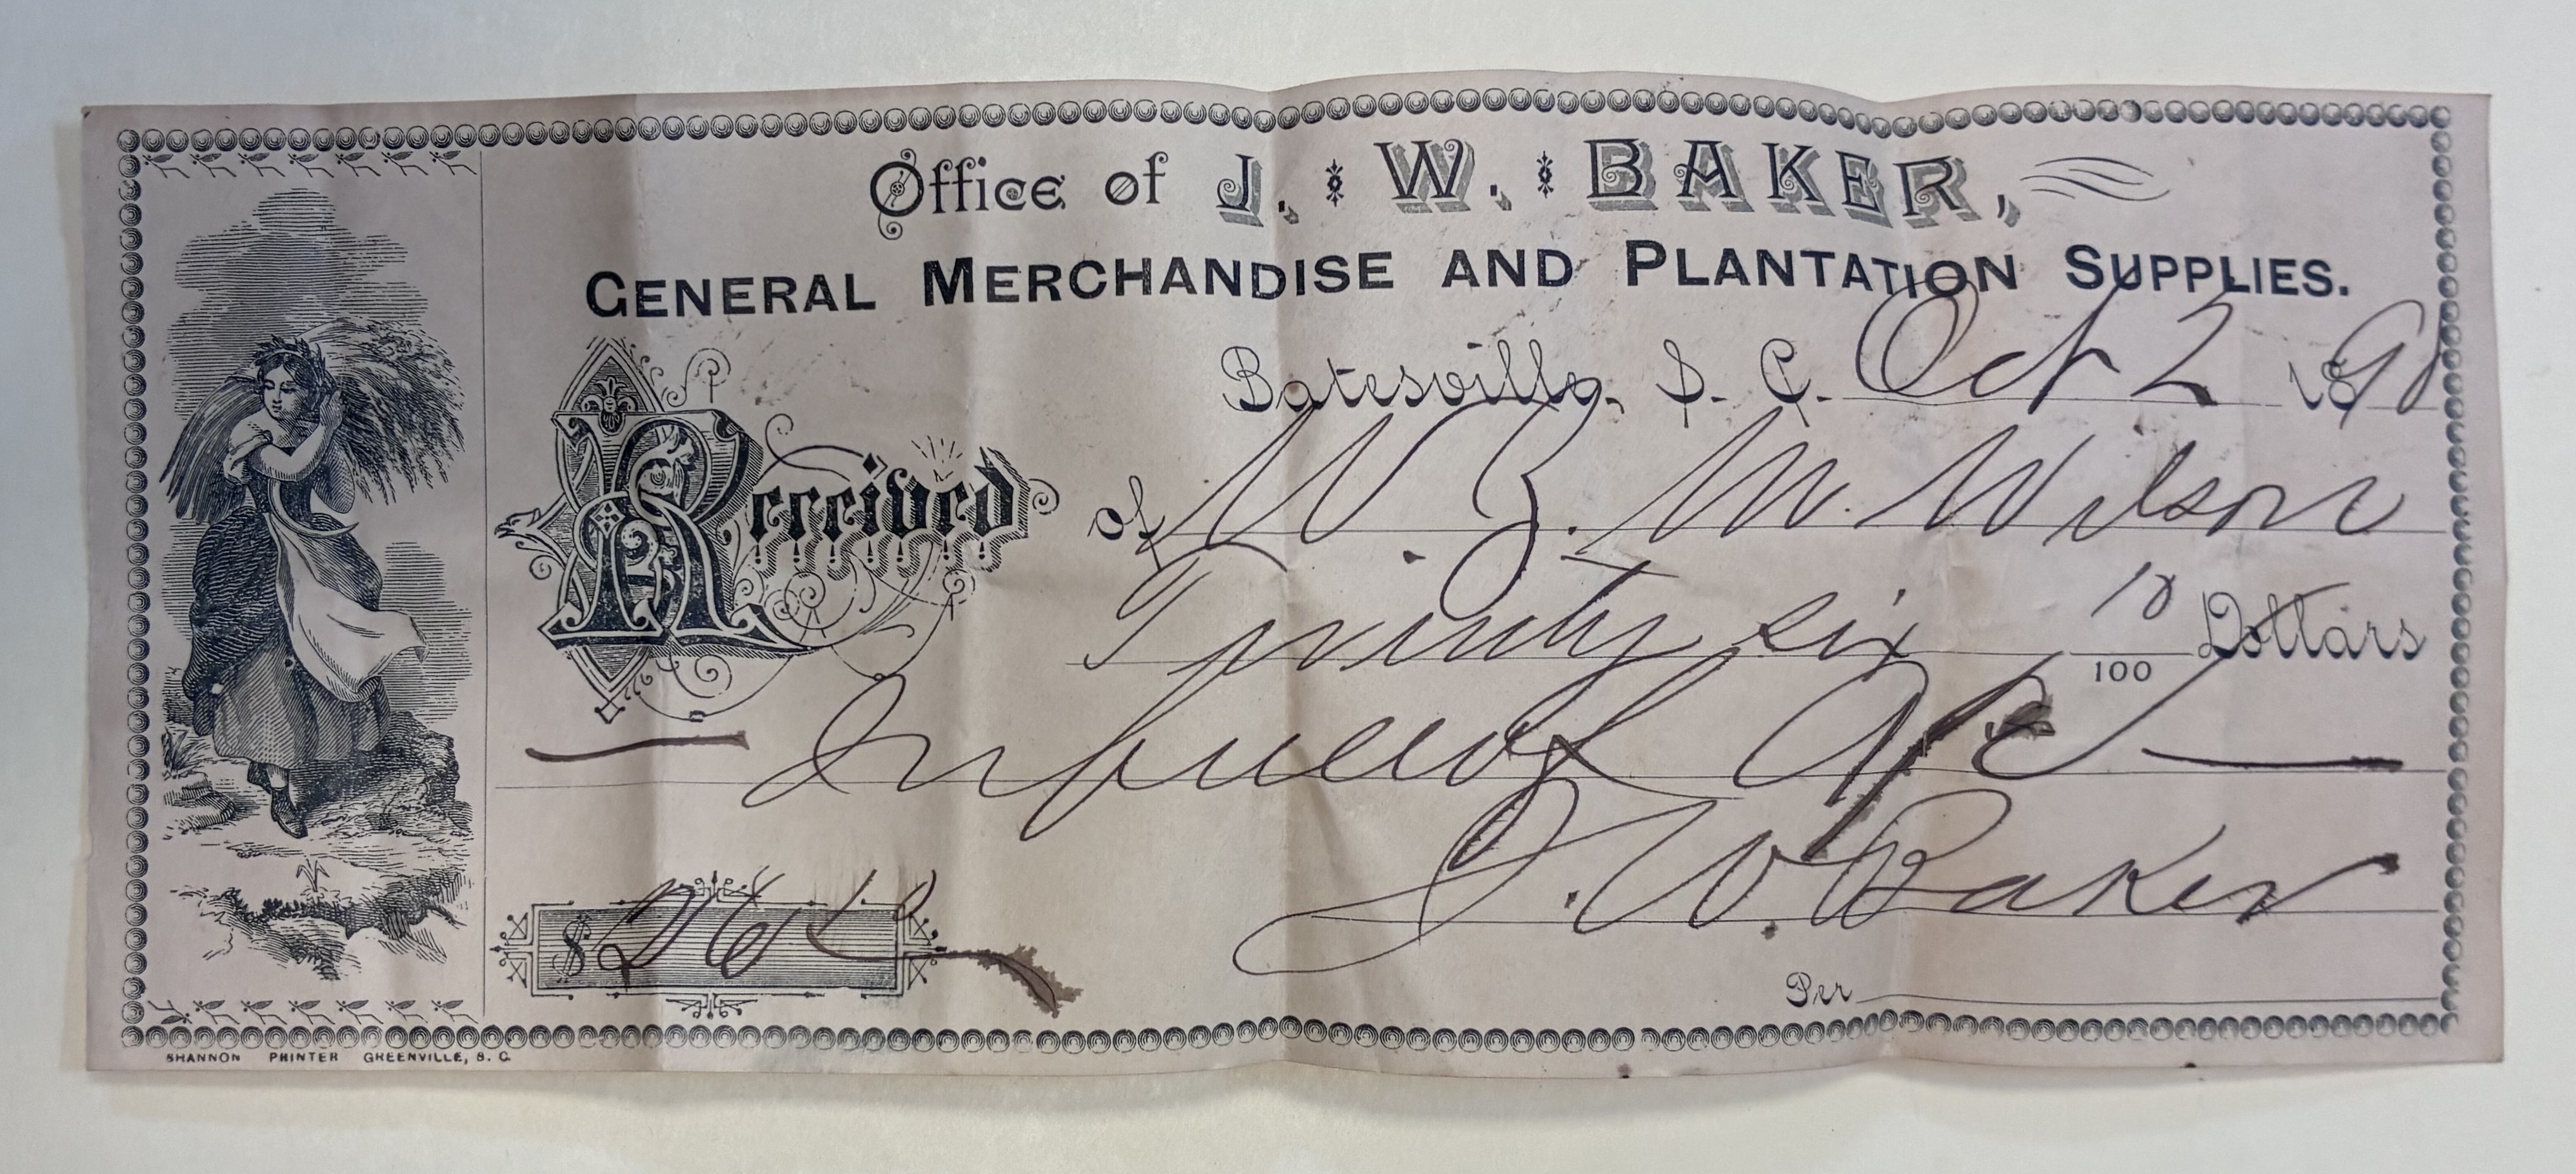 Office of J. W. BAKER,
GENERAL MERCHANDISE AND PLANTATION SUPPLIES.
Batesville, S. C. Oct 2 1890
Received of W. Z. M. Wilson
Twenty six 10/100 Dollars
In full of a/c
J. W. Baker
$ 26 10
Per
SHANNON PRINTER GREENVILLE, S. C.